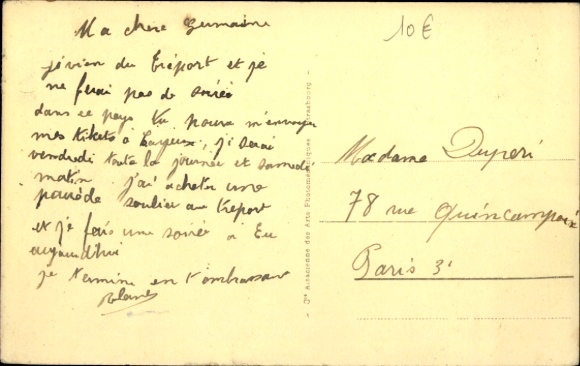 Ma chere Germaine
je vien du Tréport et je
ne ferai pas de soirée
dans ce pays tu pourra m'envoyer
mes tikets à Cayeux, j'i serai
vendredi toute la journée et samedi
matin j'ai acheter une
paire de soulier au treport
et je fais une soirée à Eu
aujourdhui
je termine en t'embrassant
10 €
Madame Duperi
78 rue Quincampoix
Paris 3e
- Cie Alsacienne des Arts Photomécaniques Strasbourg -